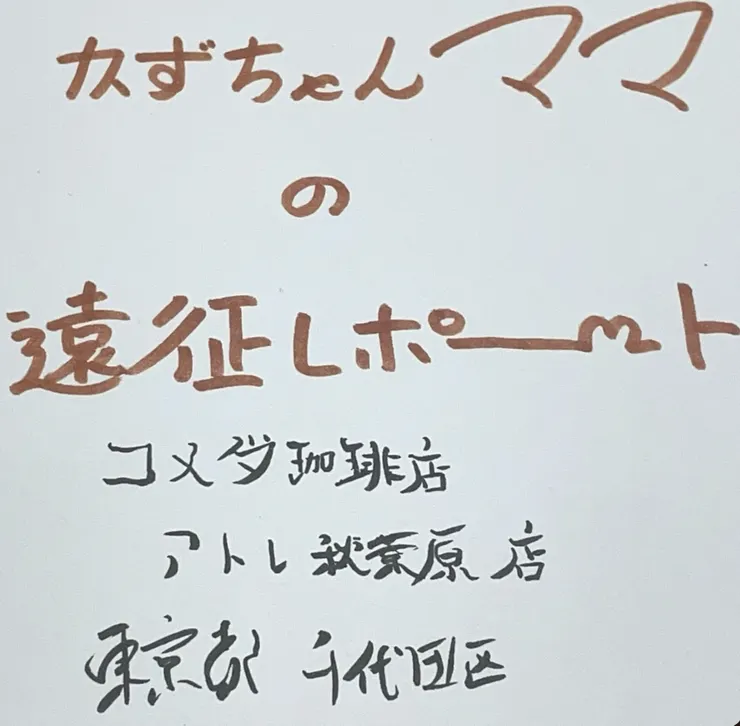 カずちゃんママ
の
遠征レポート
コメダ珈琲店
アトレ秋葉原店
東京都 千代田区